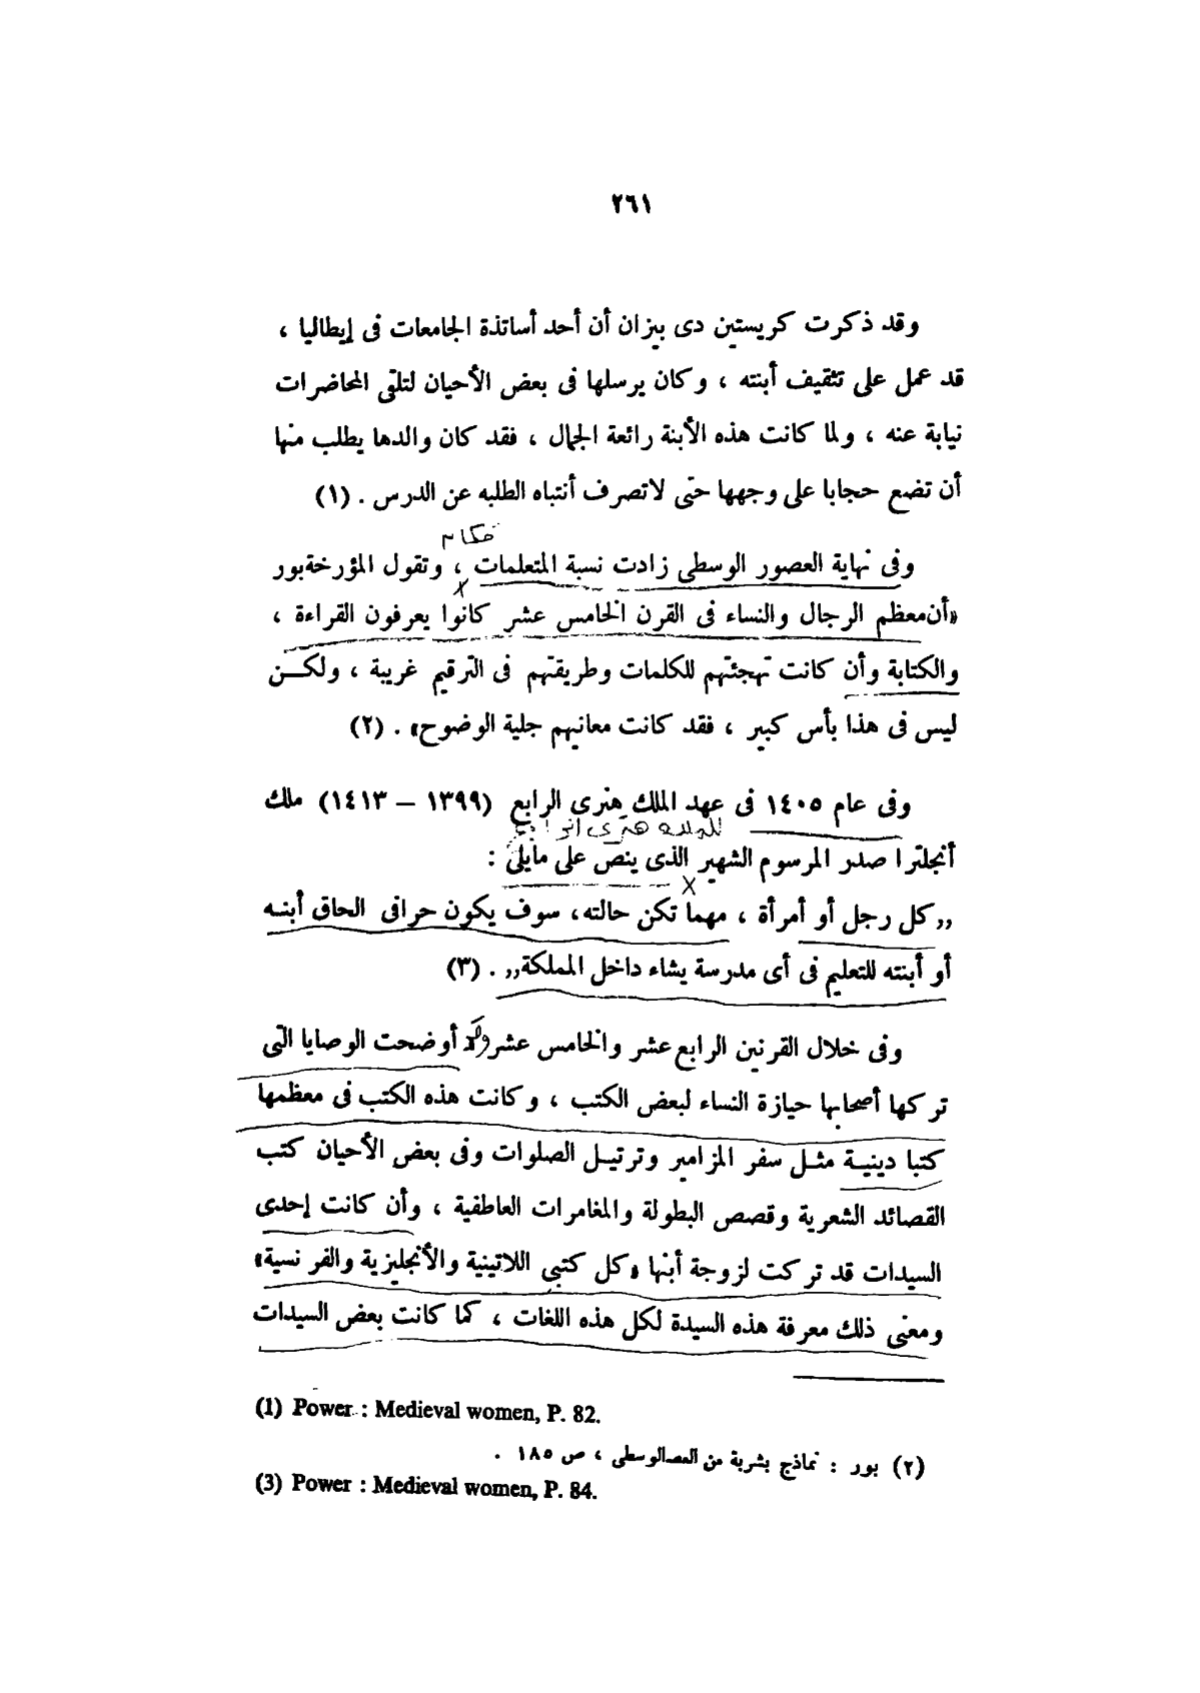 ٢٦١
وقد ذكرت كريستين دى بيزان أن أحد أساتذة الجامعات فى إيطاليا ،
قد عمل على تثقيف أبنته ، وكان يرسلها فى بعض الأحيان لتلقى المحاضرات
نيابة عنه ، ولما كانت هذه الأبنة رائعة الجمال ، فقد كان والدها يطلب منها
أن تضع حجابا على وجهها حتى لاتصرف أنتباه الطلبه عن الدرس . (١)
وفى نهاية العصور الوسطى زادت نسبة المتعلمات ، وتقول المؤرخة بور
«أن معظم الرجال والنساء فى القرن الخامس عشر كانوا يعرفون القراءة ،
والكتابة وأن كانت تهجئتهم للكلمات وطريقتهم فى الترقيم غريبة ، ولكــن
ليس فى هذا بأس كبير ، فقد كانت معانيهم جلية الوضوح» . (٢)
وفى عام ١٤٠٥ فى عهد الملك هنرى الرابع (١٣٩٩ – ١٤١٣) ملك
أنجلترا صدر المرسوم الشهير الذى ينص على مايلى :
,,كل رجل أو أمرأة ، مهما تكن حالته، سوف يكون حرا فى الحاق أبنـه
أو أبنته للتعليم فى أى مدرسة يشاء داخل المملكة,, . (٣)
وفى خلال القرنين الرابع عشر والخامس عشر أوضحت الوصايا التى
تركها أصحابها حيازة النساء لبعض الكتب ، وكانت هذه الكتب فى معظمها
كتبا دينيـة مثـل سفر المزامير وترتيـل الصلوات وفى بعض الأحيان كتب
القصائد الشعرية وقصص البطولة والمغامرات العاطفية ، وأن كانت إحدى
السيدات قد تركت لزوجة أبنها «كل كتبى اللاتينية والأنجليزية والفرنسية»
ومعنى ذلك معرفة هذه السيدة لكل هذه اللغات ، كما كانت بعض السيدات
(1) Power : Medieval women, P. 82.
(٢) بور : نماذج بشرية من العصالوسطى ، ص ١٨٥ .
(3) Power : Medieval women, P. 84.